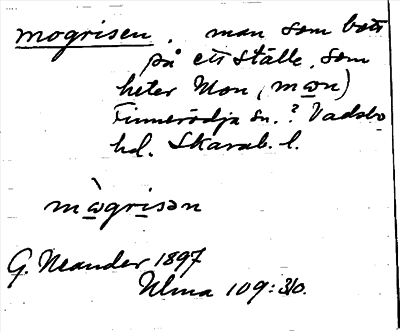 mogrisen. man som bott
på ett ställe, som
heter Mon, (mɷn)
Finnerödja sn.? Vadsbo
hd. Skarab. l.
mɷ̀grisən
G. Neander 1897
Ulma 109:310.